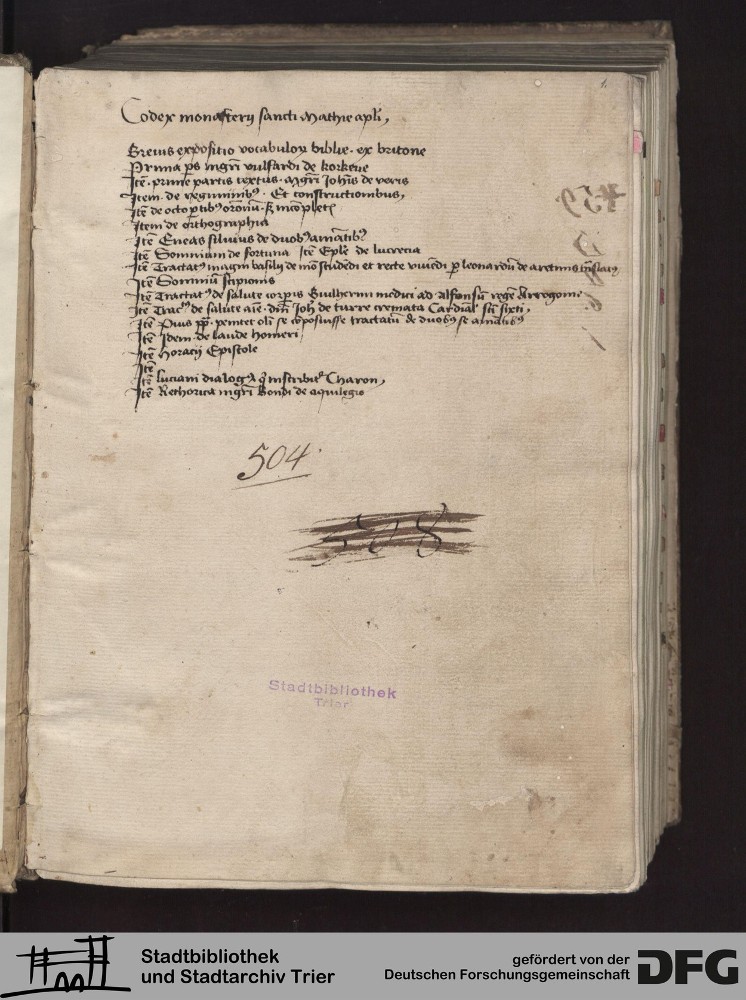 1.
Codex monasterij sancti Mathie apli,
Breuis expositio vocabuloꝝ biblie. ex britone
Prima ps mgrī vulfardi de korkene
Itē. prime partis textus. Mgrī Johīs de veris
Item. de regiminibꝫ. Et constructionibus,
Itē de octo ꝑtibꝫ
Item de orthographia
Itē Eneas siluius de duobꝫ amātibꝫ
Itē Somnium de fortuna Itē Eple de lucrecia
Itē Tractatꝫ magni basilij de et recte viuēdi ꝑ leonardū de aretinis
Itē Somniū scipionis
Itē Tractatꝫ de salute corpis Guilhermi medici ad alfonsū regē Arrogonie
Itē Tracꝫ de salute aīe. dnī Joh de turre cremata Cardīal sctī sixti,
Itē Pius pp. penitet olī se cōposuisse tractatū de duobꝫ se amātibꝫ
Itē Idem de laude homeri
Itē horacij Epistole
Itē
Itē luciani dialogꝫ q̄ inscribitʳ Charon,
Itē Rethorica mgrī Bondi de aquilegio
504.
508
Stadtbibliothek
Trier
Stadtbibliothek
und Stadtarchiv Trier
gefördert von der
Deutschen Forschungsgemeinschaft
DFG